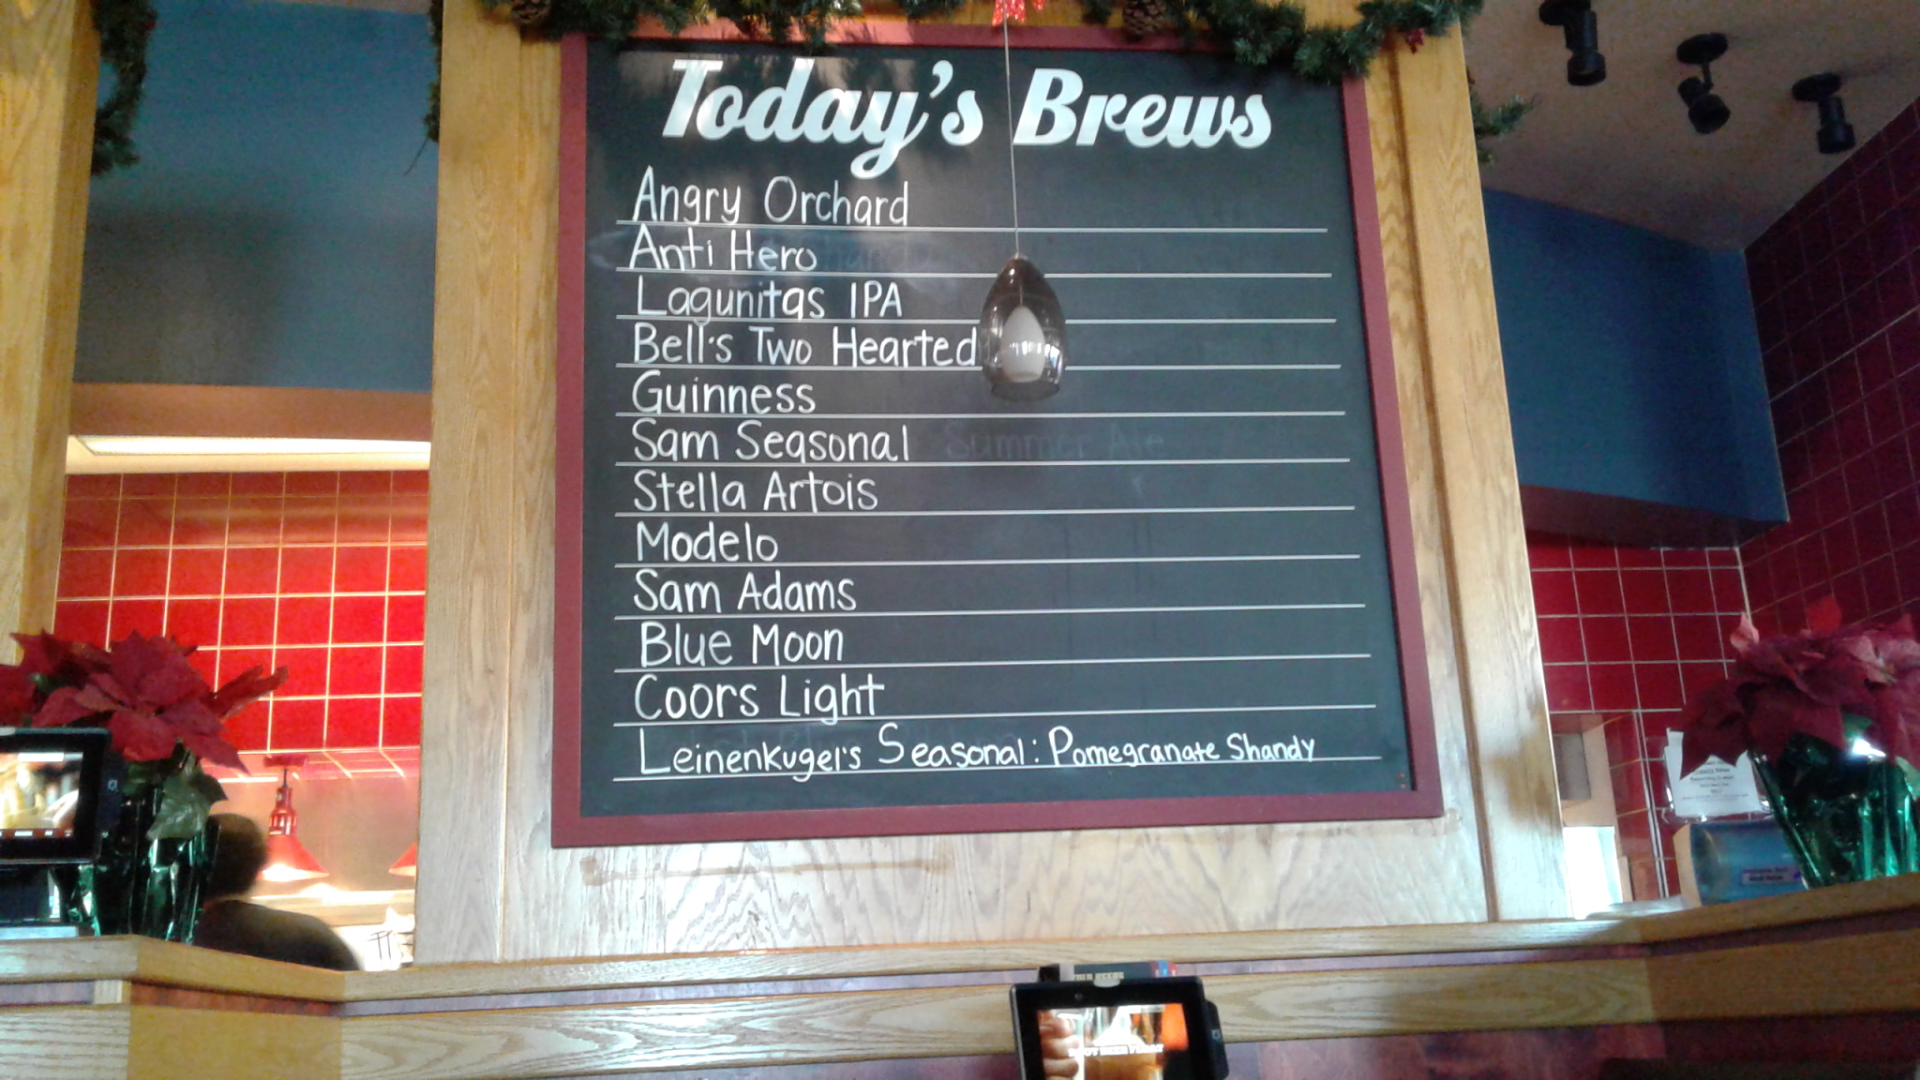 Today's Brews
Angry Orchard
Anti Hero
Lagunitas IPA
Bell's Two Hearted
Guinness
Sam Seasonal Summer Ale
Stella Artois
Modelo
Sam Adams
Blue Moon
Coors Light
Leinenkugel's Seasonal: Pomegranate Shandy